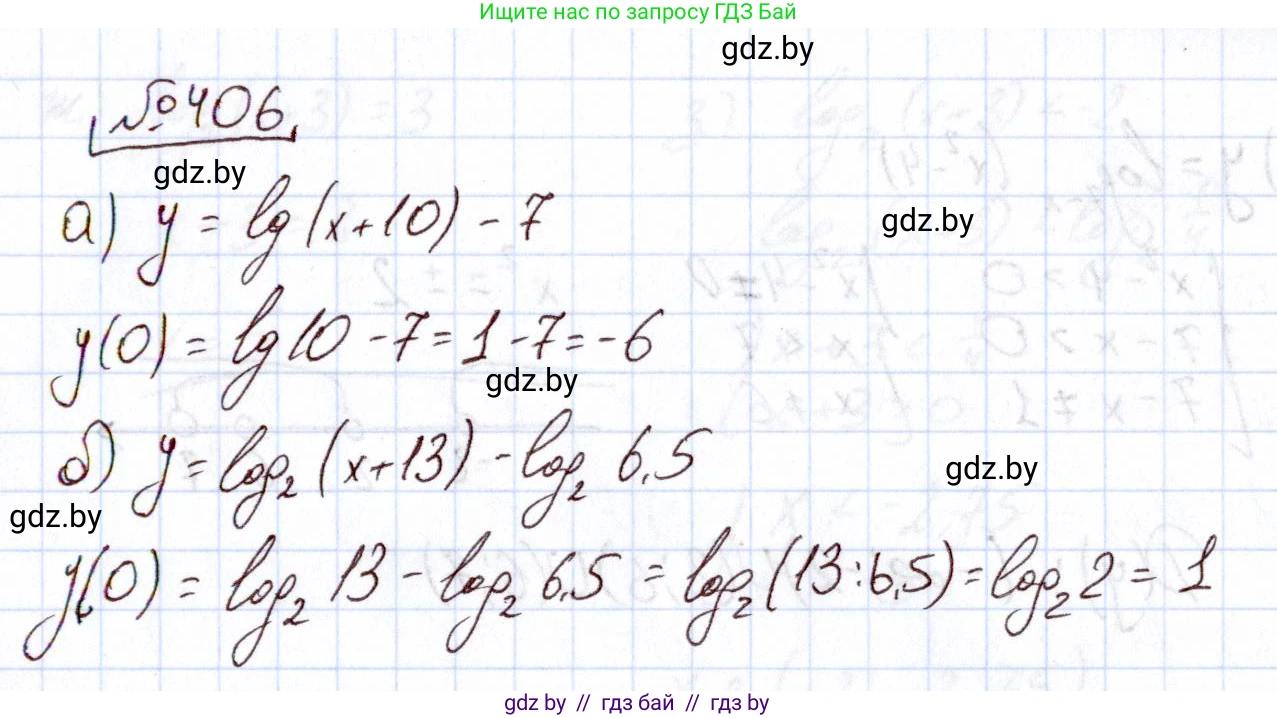 Ищите нас по запросу ГДЗ Бай
gdz.by
№406
gdz.by
а) y = lg(x+10) - 7
gdz.by
y(0) = lg10 - 7 = 1 - 7 = -6
gdz.by
б) y = log₂(x+13) - log₂ 6,5
gdz.by
gdz.by
y(0) = log₂ 13 - log₂ 6,5 = log₂(13:6,5) = log₂ 2 = 1
gdz.by // гдз бай // гдз by